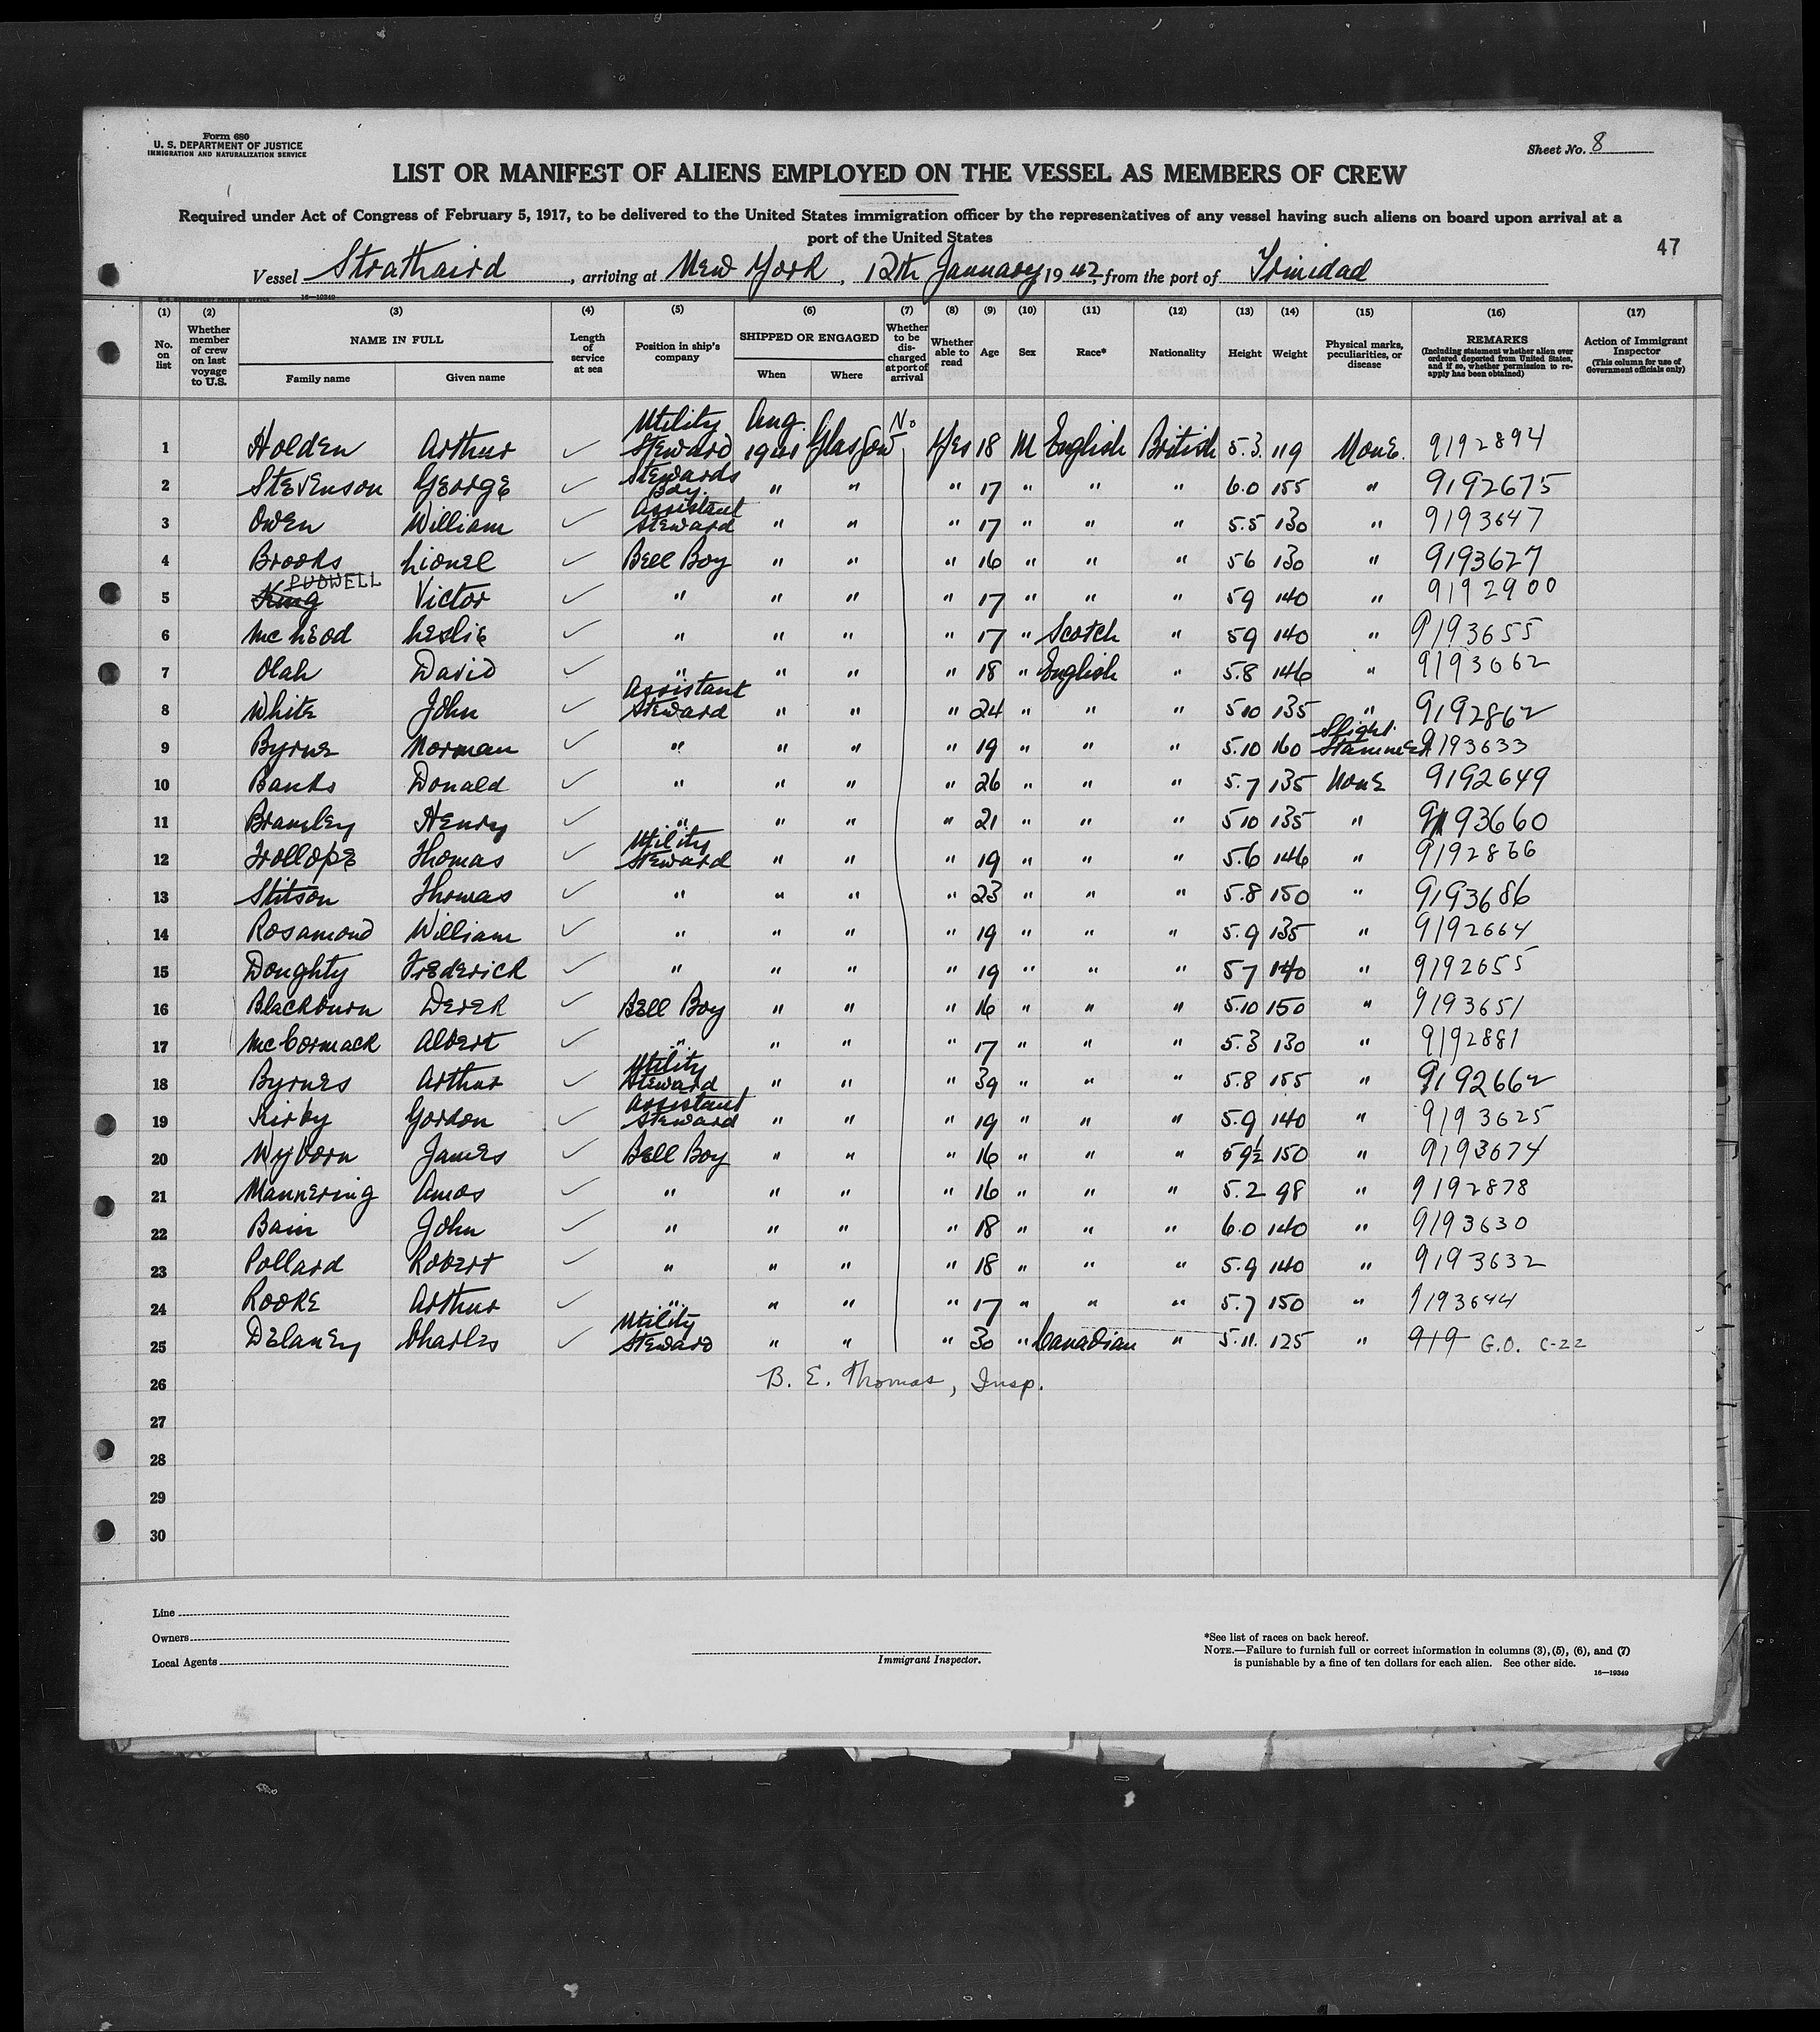 Form 680
U. S. DEPARTMENT OF JUSTICE
IMMIGRATION AND NATURALIZATION SERVICE
Sheet No. 8
LIST OR MANIFEST OF ALIENS EMPLOYED ON THE VESSEL AS MEMBERS OF CREW
Required under Act of Congress of February 5, 1917, to be delivered to the United States immigration officer by the representatives of any vessel having such aliens on board upon arrival at a
port of the United States
47
Vessel Strathaird, arriving at New York, 12th January 1942, from the port of Trinidad
16—19349
(1) (2) (3) (4) (5) (6) (7) (8) (9) (10) (11) (12) (13) (14) (15) (16) (17)
No. on list
Whether member of crew on last voyage to U.S.
NAME IN FULL
Family name Given name
Length of service at sea
Position in ship's company
SHIPPED OR ENGAGED
When Where
Whether to be discharged at port of arrival
Whether able to read
Age
Sex
Race*
Nationality
Height
Weight
Physical marks, peculiarities, or disease
REMARKS
(Including statement whether alien ever ordered deported from United States, and if so, whether permission to reapply has been obtained)
Action of Immigrant Inspector
(This column for use of Government officials only)
1 Holden Arthur ✓ Utility Steward Aug. 1941 Glasgow No Yes 18 M English British 5.3. 119 None. 9192894
2 Stevenson George ✓ Stewards Boy. " " " 17 " " " 6.0 155 " 9192675
3 Owen William ✓ Assistant Steward " " " 17 " " " 5.5 130 " 9193647
4 Brooks Lionel ✓ Bell Boy " " " 16 " " " 56 130 " 9193627
5 King PUDWELL Victor ✓ " " " " 17 " " " 59 140 " 9192900
6 McLeod Leslie ✓ " " " " 17 " Scotch " 59 140 " 9193655
7 Olah David ✓ " " " " 18 " English " 5.8 146 " 9193662
8 White John ✓ Assistant Steward " " " 24 " " " 510 135 " 9192862
9 Byrne Norman ✓ " " " " 19 " " " 5.10 160 Slight Stammer 9193633
10 Banks Donald ✓ " " " " 26 " " " 5.7 135 None 9192649
11 Bramley Henry ✓ " " " " 21 " " " 510 135 " 9193660
12 Trollope Thomas ✓ Utility Steward " " " 19 " " " 5.6 146 " 9192866
13 Stitson Thomas ✓ " " " " 23 " " " 5.8 150 " 9193686
14 Rosamond William ✓ " " " " 19 " " " 5.9 135 " 9192664
15 Doughty Frederick ✓ " " " " 19 " " " 57 140 " 9192655
16 Blackburn Derek ✓ Bell Boy " " " 16 " " " 5.10 150 " 9193651
17 McCormack Albert ✓ " " " " 17 " " " 5.3 130 " 9192881
18 Byrnes Arthur ✓ Utility Steward " " " 39 " " " 5.8 155 " 9192662
19 Kirby Gordon ✓ Assistant Steward " " " 19 " " " 5.9 140 " 9193625
20 Wyborn James ✓ Bell Boy " " " 16 " " " 59½ 150 " 9193674
21 Mannering Amos ✓ " " " " 16 " " " 5.2 98 " 9192878
22 Bain John ✓ " " " " 18 " " " 6.0 140 " 9193630
23 Pollard Robert ✓ " " " " 18 " " " 5.9 140 " 9193632
24 Rooke Arthur ✓ " " " " 17 " " " 5.7 150 " 9193644
25 Delaney Charles ✓ Utility Steward " " " 30 " Canadian " 5.11. 125 " 919 G.O. C-22
26 B. E. Thomas, Insp.
27
28
29
30
Line
Owners
Local Agents
Immigrant Inspector.
*See list of races on back hereof.
NOTE.—Failure to furnish full or correct information in columns (3), (5), (6), and (7)
is punishable by a fine of ten dollars for each alien. See other side.
16—19349